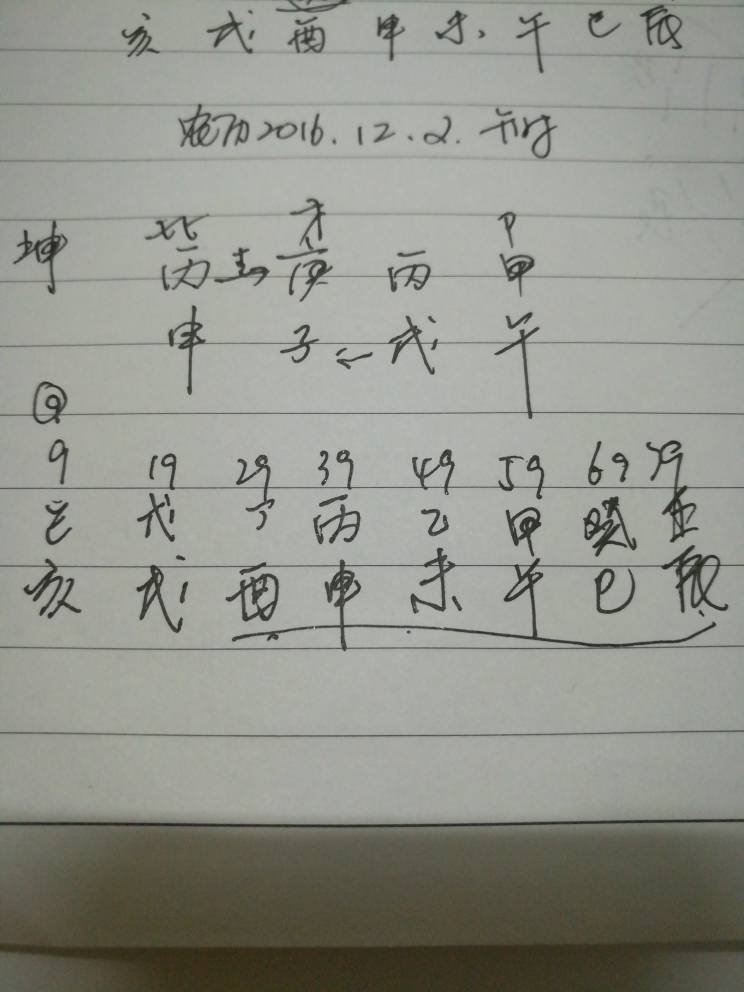 亥 戌 酉 申 未 午 巳 辰
农历2016.12.2.午时
比 才 P
坤 丙 庚 丙 甲
申 子 ← 戌 午
9 19 29 39 49 59 69 79
己 戊 丁 丙 乙 甲 癸 壬
亥 戌 酉 申 未 午 巳 辰